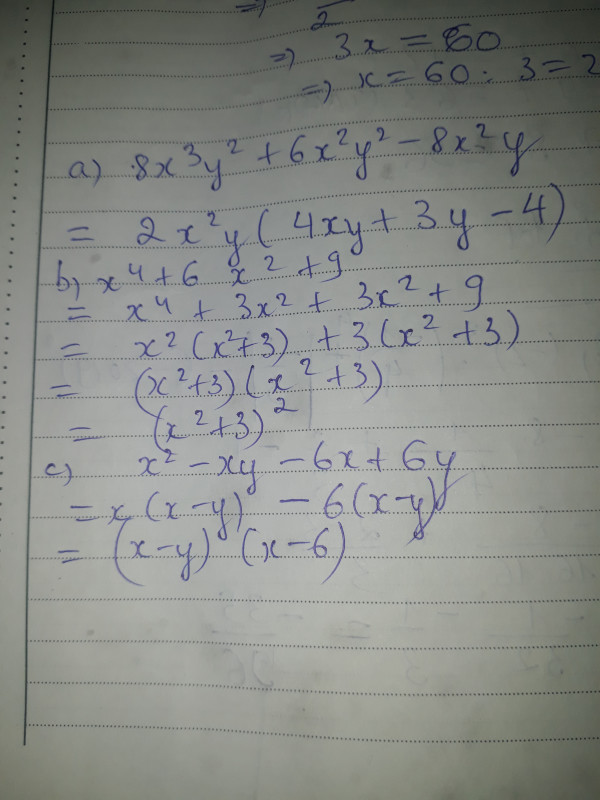 =)
2
=) 3x = 60
=) x = 60 : 3 = 2
a) 8x³y² + 6x²y² - 8x²y
= 2x²y( 4xy + 3y - 4)
b) x⁴ + 6 x² + 9
= x⁴ + 3x² + 3x² + 9
= x² (x²+3) + 3(x² + 3)
= (x²+3)(x² + 3)
= (x²+3)²
c) x² - xy - 6x + 6y
= x (x-y) - 6(x-y)
= (x-y) (x-6)